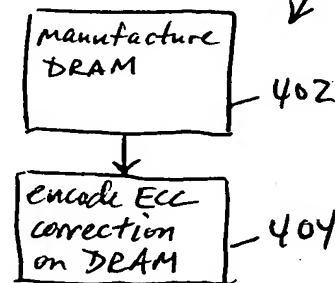 manufacture
DRAM
402
encode ECC
correction
on DRAM
404